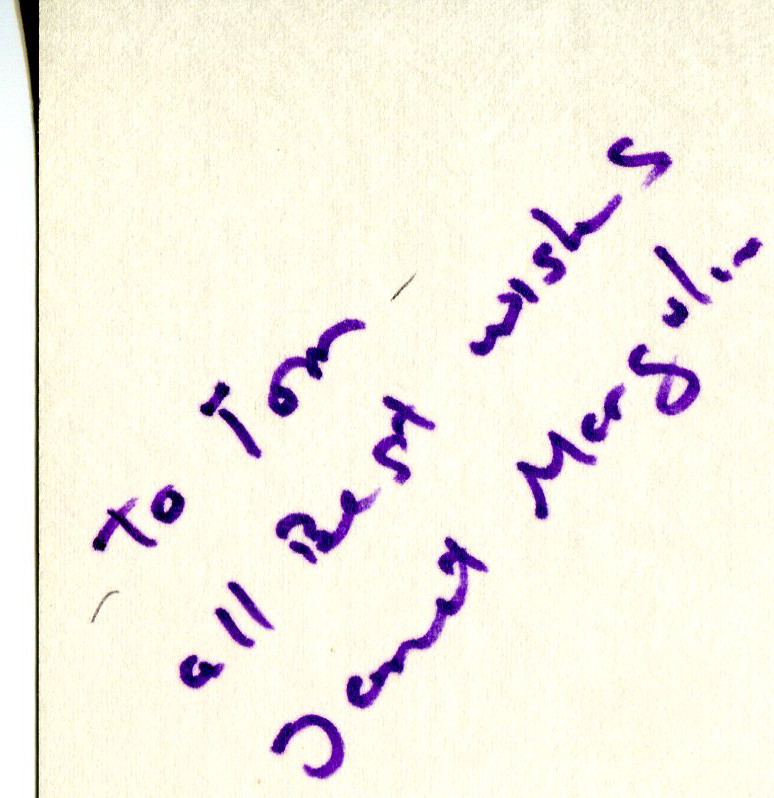 To Tom
all Best wishes
Janet Margolin